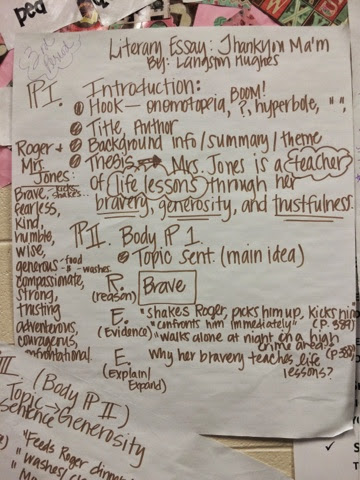 3rd Period
Literary Essay: Thankyou Ma'm
By: Langston Hughes
¶I. Introduction:
Hook — onomotopeia, BOOM! ?, hyperbole, " "
Title, Author
Background info/summary/theme
Thesis → Mrs. Jones is a teacher
of life lessons through her
bravery, generosity, and trustfulness.
Roger &
Mrs.
Jones:
Brave - kicks, shakes
fearless,
kind,
humble,
wise,
generous - food
- washes
compassionate,
strong,
trusting
adventerous,
courageous,
confrontational
¶II. Body ¶ 1.
Topic sent. (main idea)
R. Brave
(reason)
E. "shakes Roger, picks him up, kicks him
(Evidence) "confronts him immediately"
"walks alone at night in a high
crime area"
E. Why her bravery teaches life
(Explain/ lessons?
Expand)
III (Body ¶ II)
Topic → Generosity
Sentence
"Feeds Roger dinner
"washes